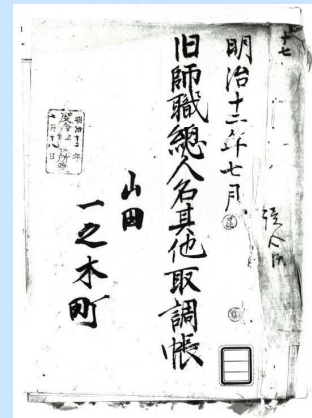 十七
明治十二年七月
旧師職總人名其他取調帳
山田
一之木町